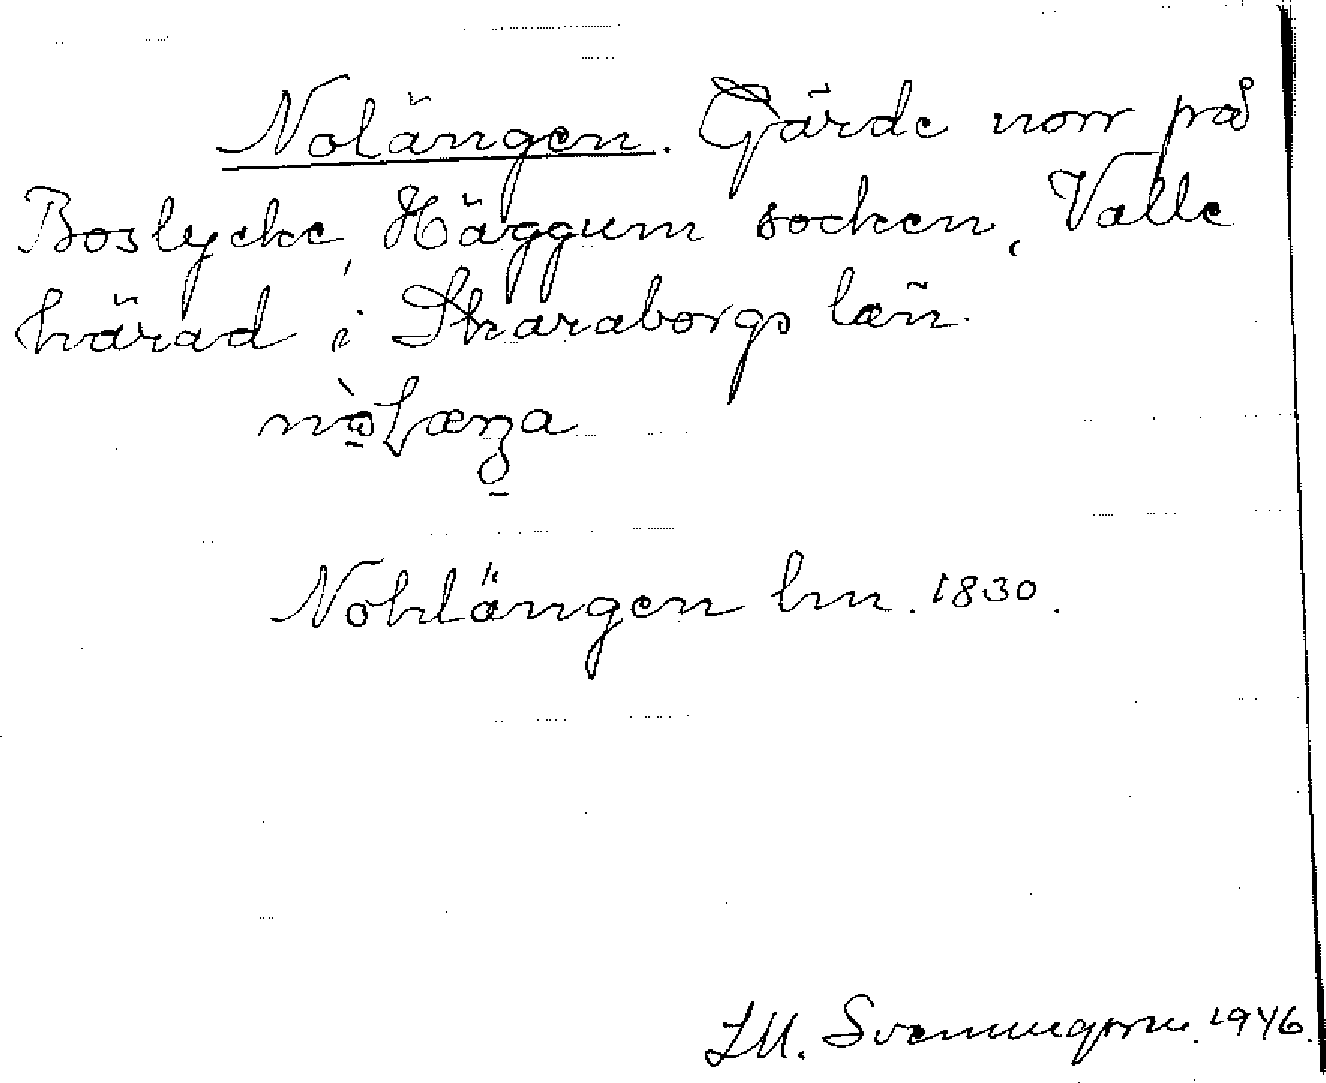 Nolängen. Gärde norr på
Boslycke, Häggum socken, Valle
härad i Skaraborgs län.
Nohlängen lm. 1830.
Svenningsson. 1946.